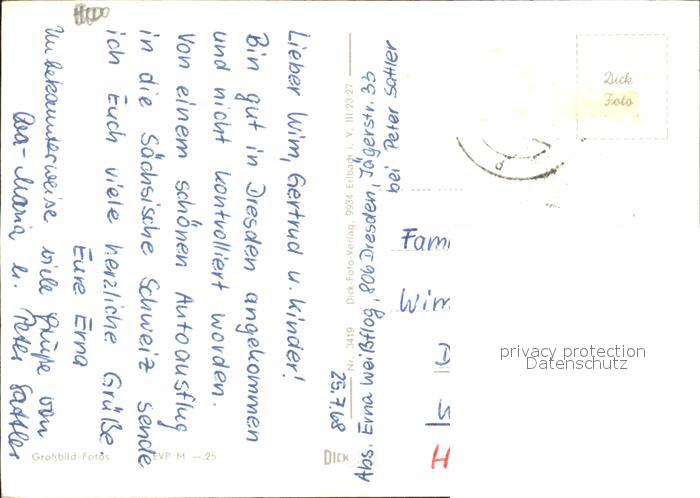 Lieber Wim, Gertrud u. Kinder!
Bin gut in Dresden angekommen
und nicht kontrolliert worden.
Von einem schönen Autoausflug
in die Sächsische Schweiz sende
ich Euch viele herzliche Grüße.
Eure Erna
Unbekannterweise viele Grüße von
Eva-Maria u. Peter Sattler
25.7.68
Abs. Erna Weißflog, 806 Dresden, Jägerstr. 33
bei Peter Sattler
Nr. 3419 Dick-Foto-Verlag, 9934 Erlbach i. V. III 23 27
Dick
Foto
Fam
Wim
H
privacy protection
Datenschutz
Großbild-Fotos EVP M —.25
DICK